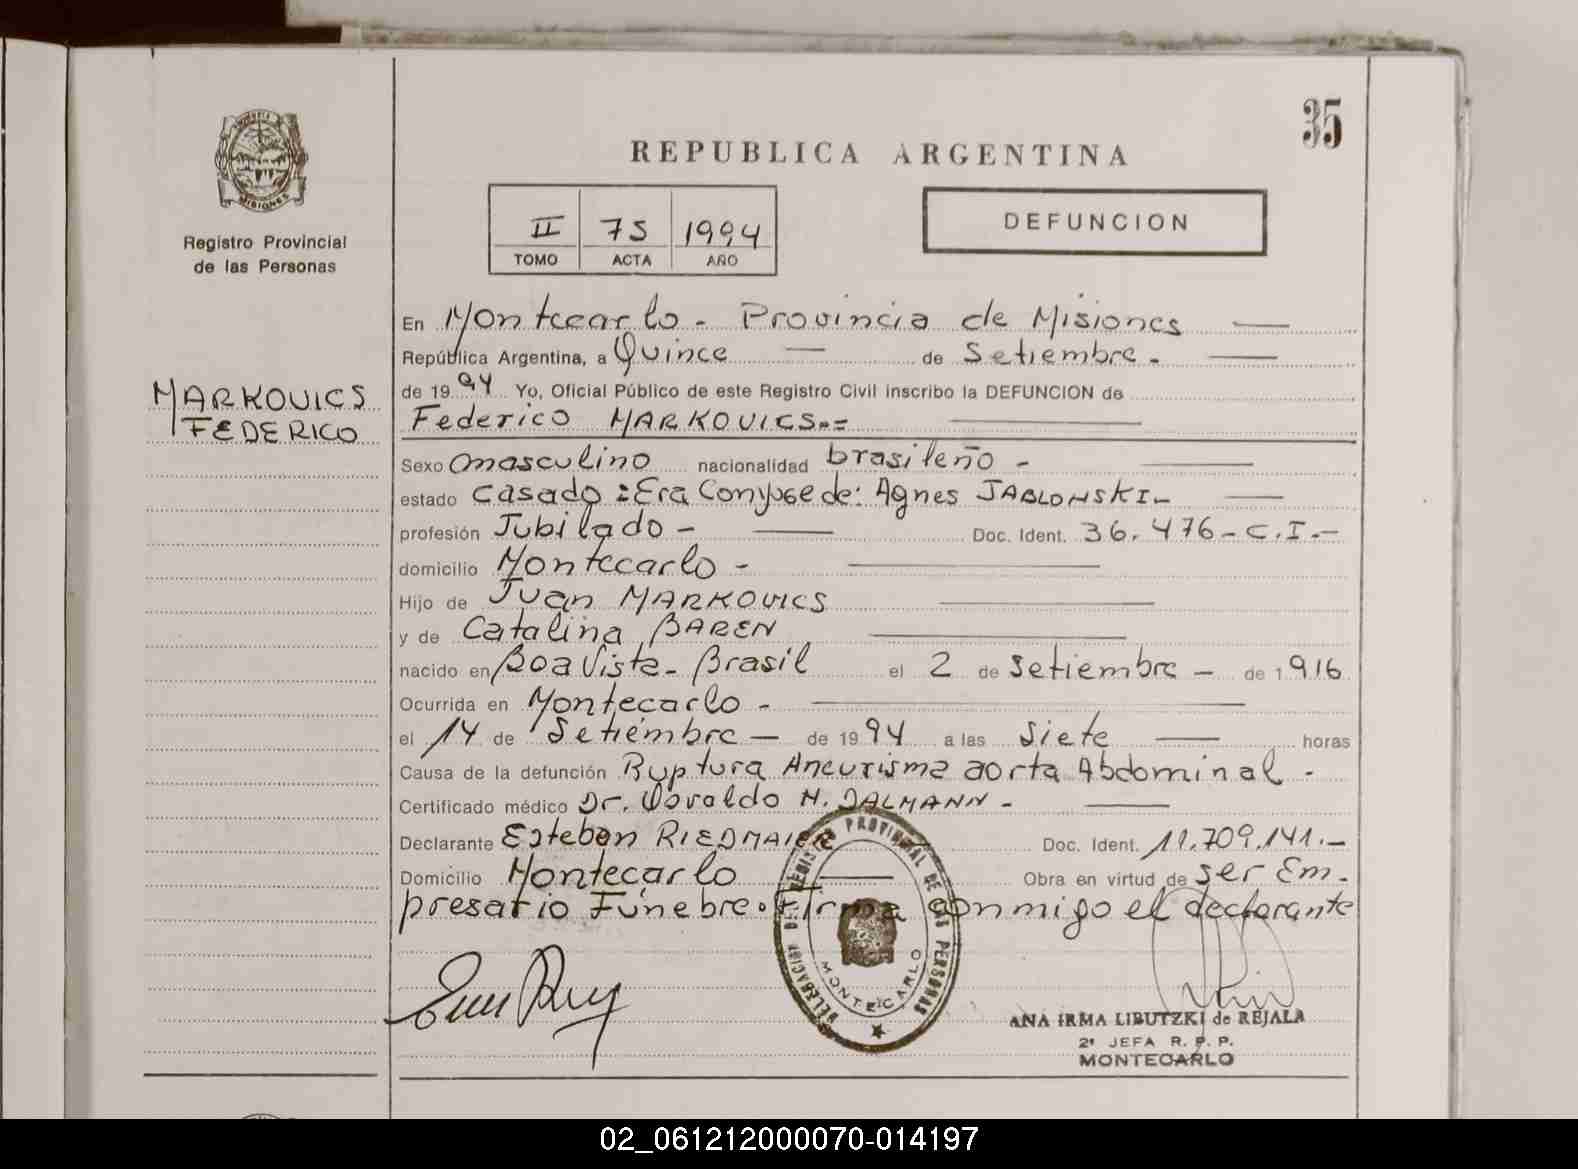 35
REPUBLICA ARGENTINA
MISIONES
Registro Provincial
de las Personas
II 75 1994
TOMO ACTA AÑO
DEFUNCION
MARKOVICS
FEDERICO
En Montecarlo - Provincia de Misiones
República Argentina, a Quince de Setiembre -
de 1994 Yo, Oficial Público de este Registro Civil inscribo la DEFUNCION de
Federico MARKOVICS.=
Sexo masculino nacionalidad brasileño -
estado casado : Era Conyuge de: Agnes JABLONSKI -
profesión Jubilado - Doc. Ident. 36.476 - C.I. -
domicilio Montecarlo -
Hijo de Juan MARKOVICS
y de Catalina BAREN
nacido en Boa Vista - Brasil el 2 de Setiembre - de 1916
Ocurrida en Montecarlo -
el 14 de Setiembre - de 1994 a las Siete horas
Causa de la defunción Ruptura Aneurisma aorta Abdominal -
Certificado médico Dr. Osvaldo H. DALMANN -
Declarante Esteban RIEDMAIER Doc. Ident. 11.709.141. -
Domicilio Montecarlo Obra en virtud de ser Em-
presario Fúnebre. Firma conmigo el declarante
DELEGACION DEL REGISTRO PROVINCIAL DE LAS PERSONAS
MONTECARLO
ANA IRMA LIBUTZKI de REJALA
2ª JEFA R. P. P.
MONTECARLO
02_061212000070-014197